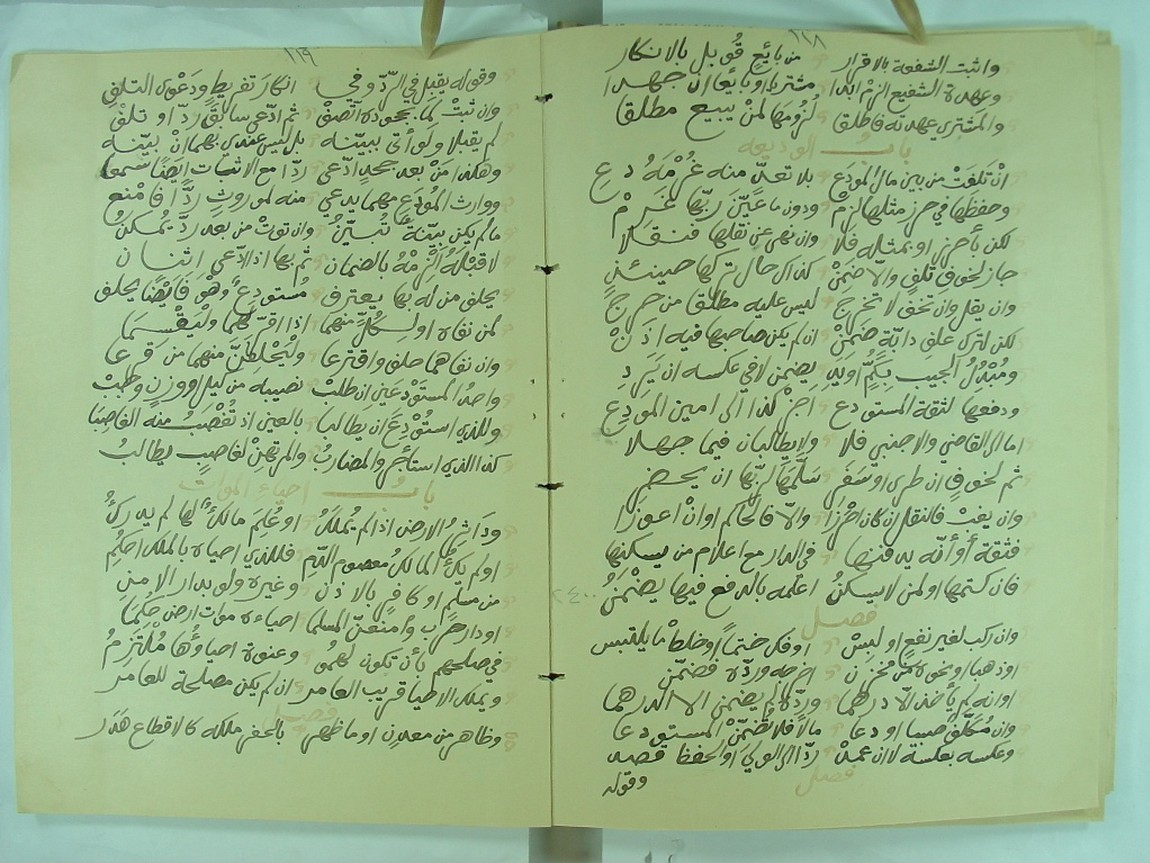 ١١٨
واثبت الشفعة بالاقرار من بائع قوبل بالانكار
وعهدة الشفيع الزم ابدا مشتريا او بايعا ان جهدا
والمشتري عهدته فاطلق لزومها لمن يبيع مطلقا
باب الوديعه
ان تلفت من بين مال المودَع بلا تعد منه غرمه دع
وحفظها في حرز مثلها لزم ودون ما عين ربها غرم
لكن بأحرز او بمثله فلا وان نهى عن نقلها فنقلا
جاز لخوف تلف والا ضمن كذاك حال تركها حينئذ
وان يقل وان تخف لا تخرج ليس عليه مطلقا من حرج
لكن لترك علف دابة ضمن ان لم يكن صاحبها فيه اذن
ومبدل الجيب بكم او يد يضمن لا في عكسه ان يرد
ودفعها لثقة المستودع اجز كذا الى امين المودع
اما الى القاضي والاجنبي فلا ولا يطالبان فيما جهلا
ثم لخوف ان طرى او سفر سلمها لربها ان يحضر
وان يغب فالنقل ان كان احرزا والا فالحاكم او ان اعوزا
فثقة أو أنه يدفنها في الدار مع اعلام من يسكنها
فان كتمها او لمن لا يسكن اعلمه بالدفع فيها يضمن
فصل
وان ركب لغير نفع او لبس او فك ختما او خلط ما يلتبس
او ذهبا او نحوه من مخزن اخرجه ورده فضمن
او انه لم يأخذ الا درهما ورده لم يضمن الا الدرهما
وان مكلف صبيا اودعا مالا فلا تضمن المستودعا
وعكسه بعكسه لا ان عمد ردا الى الولي او الحفظ قصد
فصل
وقوله
١١٩
وقوله يقبل في الرد وفي انكار تفريط ودعوى التلف
وان ثبت لما بجحوده اتصف ثم ادعى سابق رد او تلف
لم يقبلا ولو أتى ببينه بل ليس عندي بهما ان بينه
وهكذا من بعد جحد ادعى ردا مع الاثبات ايضا سمعا
ووارث المودع مهما يدعي منه لموروث ردا فامنع
ما لم يكن بينة تبين وان توت من بعد رد يمكن
لا قبله الزمه بالضمان ثم بها اذا ادعى اثنان
يحلف من له بها يعترف مستودع وهو فايضا يحلف
لمن نفاه او لكل منهما اذا اقر لهما وليقسما
وان نفاهما حلف واقترعا وليحلفن منهما من قرعا
واحد المستودعين ان طلب نصيبه من كيل او وزن وجب
وللذي استودع ان يطالبا بالعين اذ تغصب منه الغاصبا
كذا الذي استأجر والمضارب والمرتهن لغاصب يطالب
باب احياء الموات
وداثر الارض اذا لم يملك او علم مالك لها لم يدرك
او لم يك المالك معصوم الدم فللذي احياه بالملك احكم
من مسلم او كافر بالاذن وغيره ولو بدار الامن
او دار حرب وامنعن المسلما احياءه موات ارض حكما
في صلحهم بأن تكون لهم وعنوة احياؤها ملتزم
ويملك الاحيا قريب العامر ان لم يكن مصلحة للعامر
فصل
وظاهر من معدن او ما ظهر بالحفر ملكه كالاقطاع هدر
٢٤٠٠